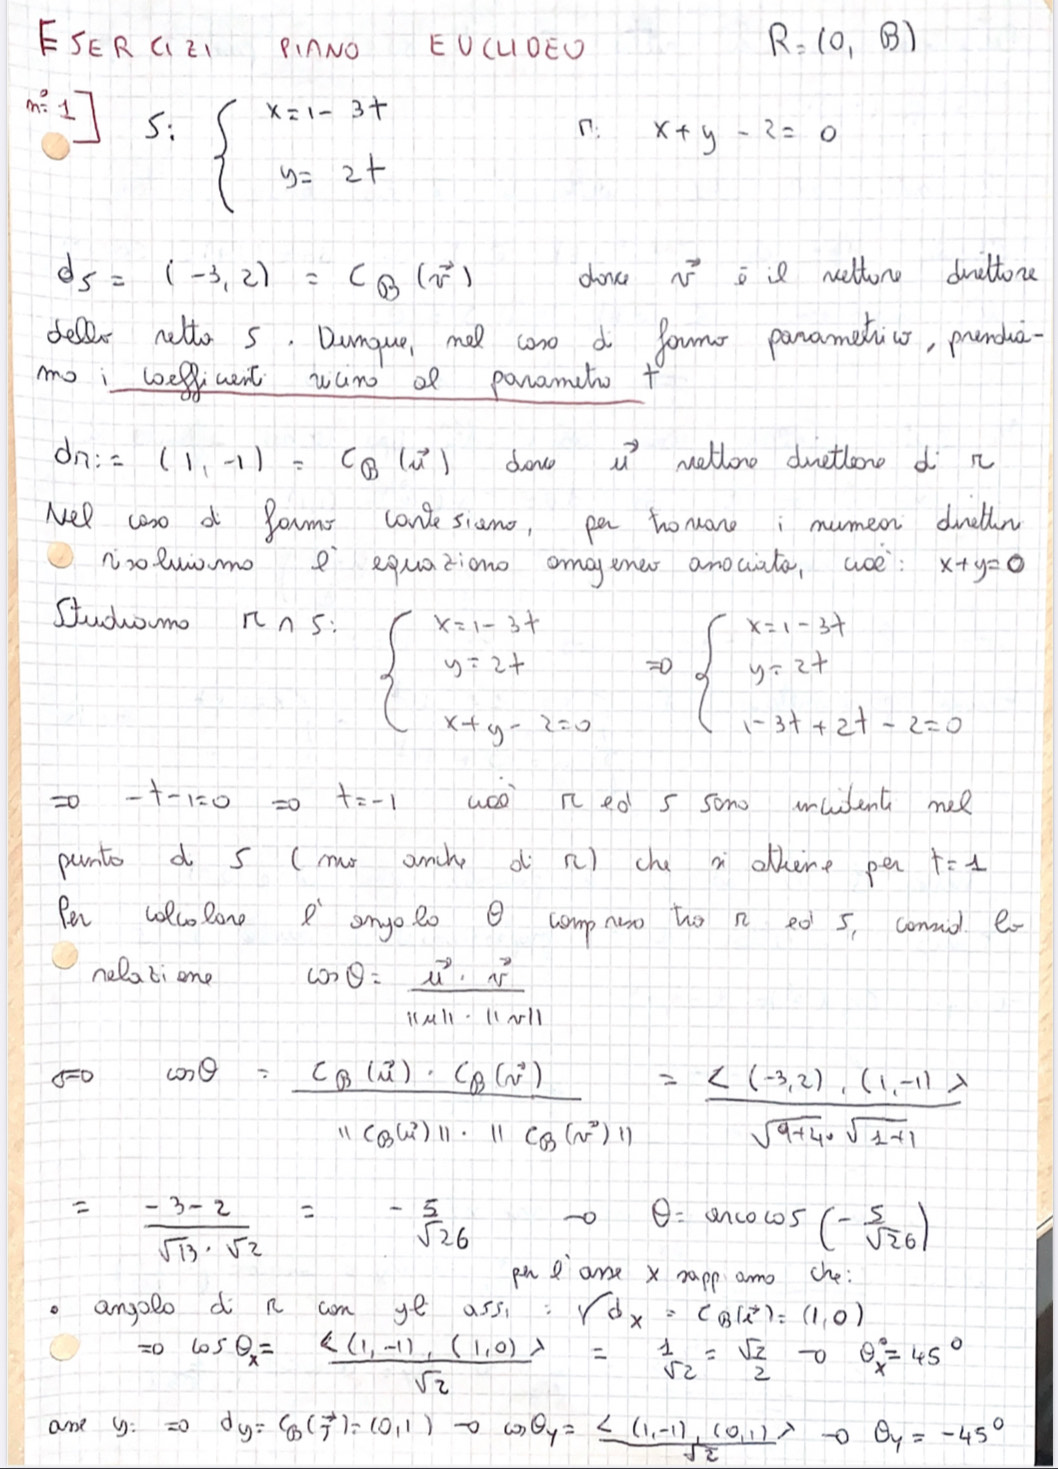 ESERCIZI PIANO EUCLIDEO R=(O, B)
n° 1] S: { x=1-3t r: x+y-2=0
y= 2t
ds = (-3,2) = C_B(v⃗) dove v⃗ è il vettore direttore
della retta s. Dunque, nel caso di forma parametrica, prendia-
mo i coefficienti vicino al parametro t
dr:= (1,-1) = C_B(u⃗) dove u⃗ vettore direttore di r
Nel caso di forma cartesiana, per trovare i numeri direttori
risolviamo l'equazione omogenea associata, cioè: x+y=0
Studiamo r∩s: { x=1-3t => { x=1-3t
y=2t y=2t
x+y-2=0 1-3t+2t-2=0
=> -t-1=0 => t=-1 cioè r ed s sono incidenti nel
punto di s (ma anche di r) che si ottiene per t=1
Per calcolare l'angolo θ compreso tra r ed s, consid. la
relazione cosθ= u⃗ · v⃗ / ||u|| · ||v||
=> cosθ = C_B(u⃗) · C_B(v⃗) / ||C_B(u⃗)|| · ||C_B(v⃗)|| = <(-3,2), (1,-1)> / √9+4 · √1+1
= -3-2 / √13 · √2 = - 5/√26 → θ= arcocos(-5/√26)
per l'asse x sappiamo che:
• angolo di r con gli assi: dx = C_B(i⃗)= (1,0)
=> cosθx= <(1,-1), (1,0)> / √2 = 1/√2 = √2/2 → θx°=45°
asse y: => dy= C_B(j⃗)=(0,1) → cosθy= <(1,-1), (0,1)> / √2 → θy = -45°